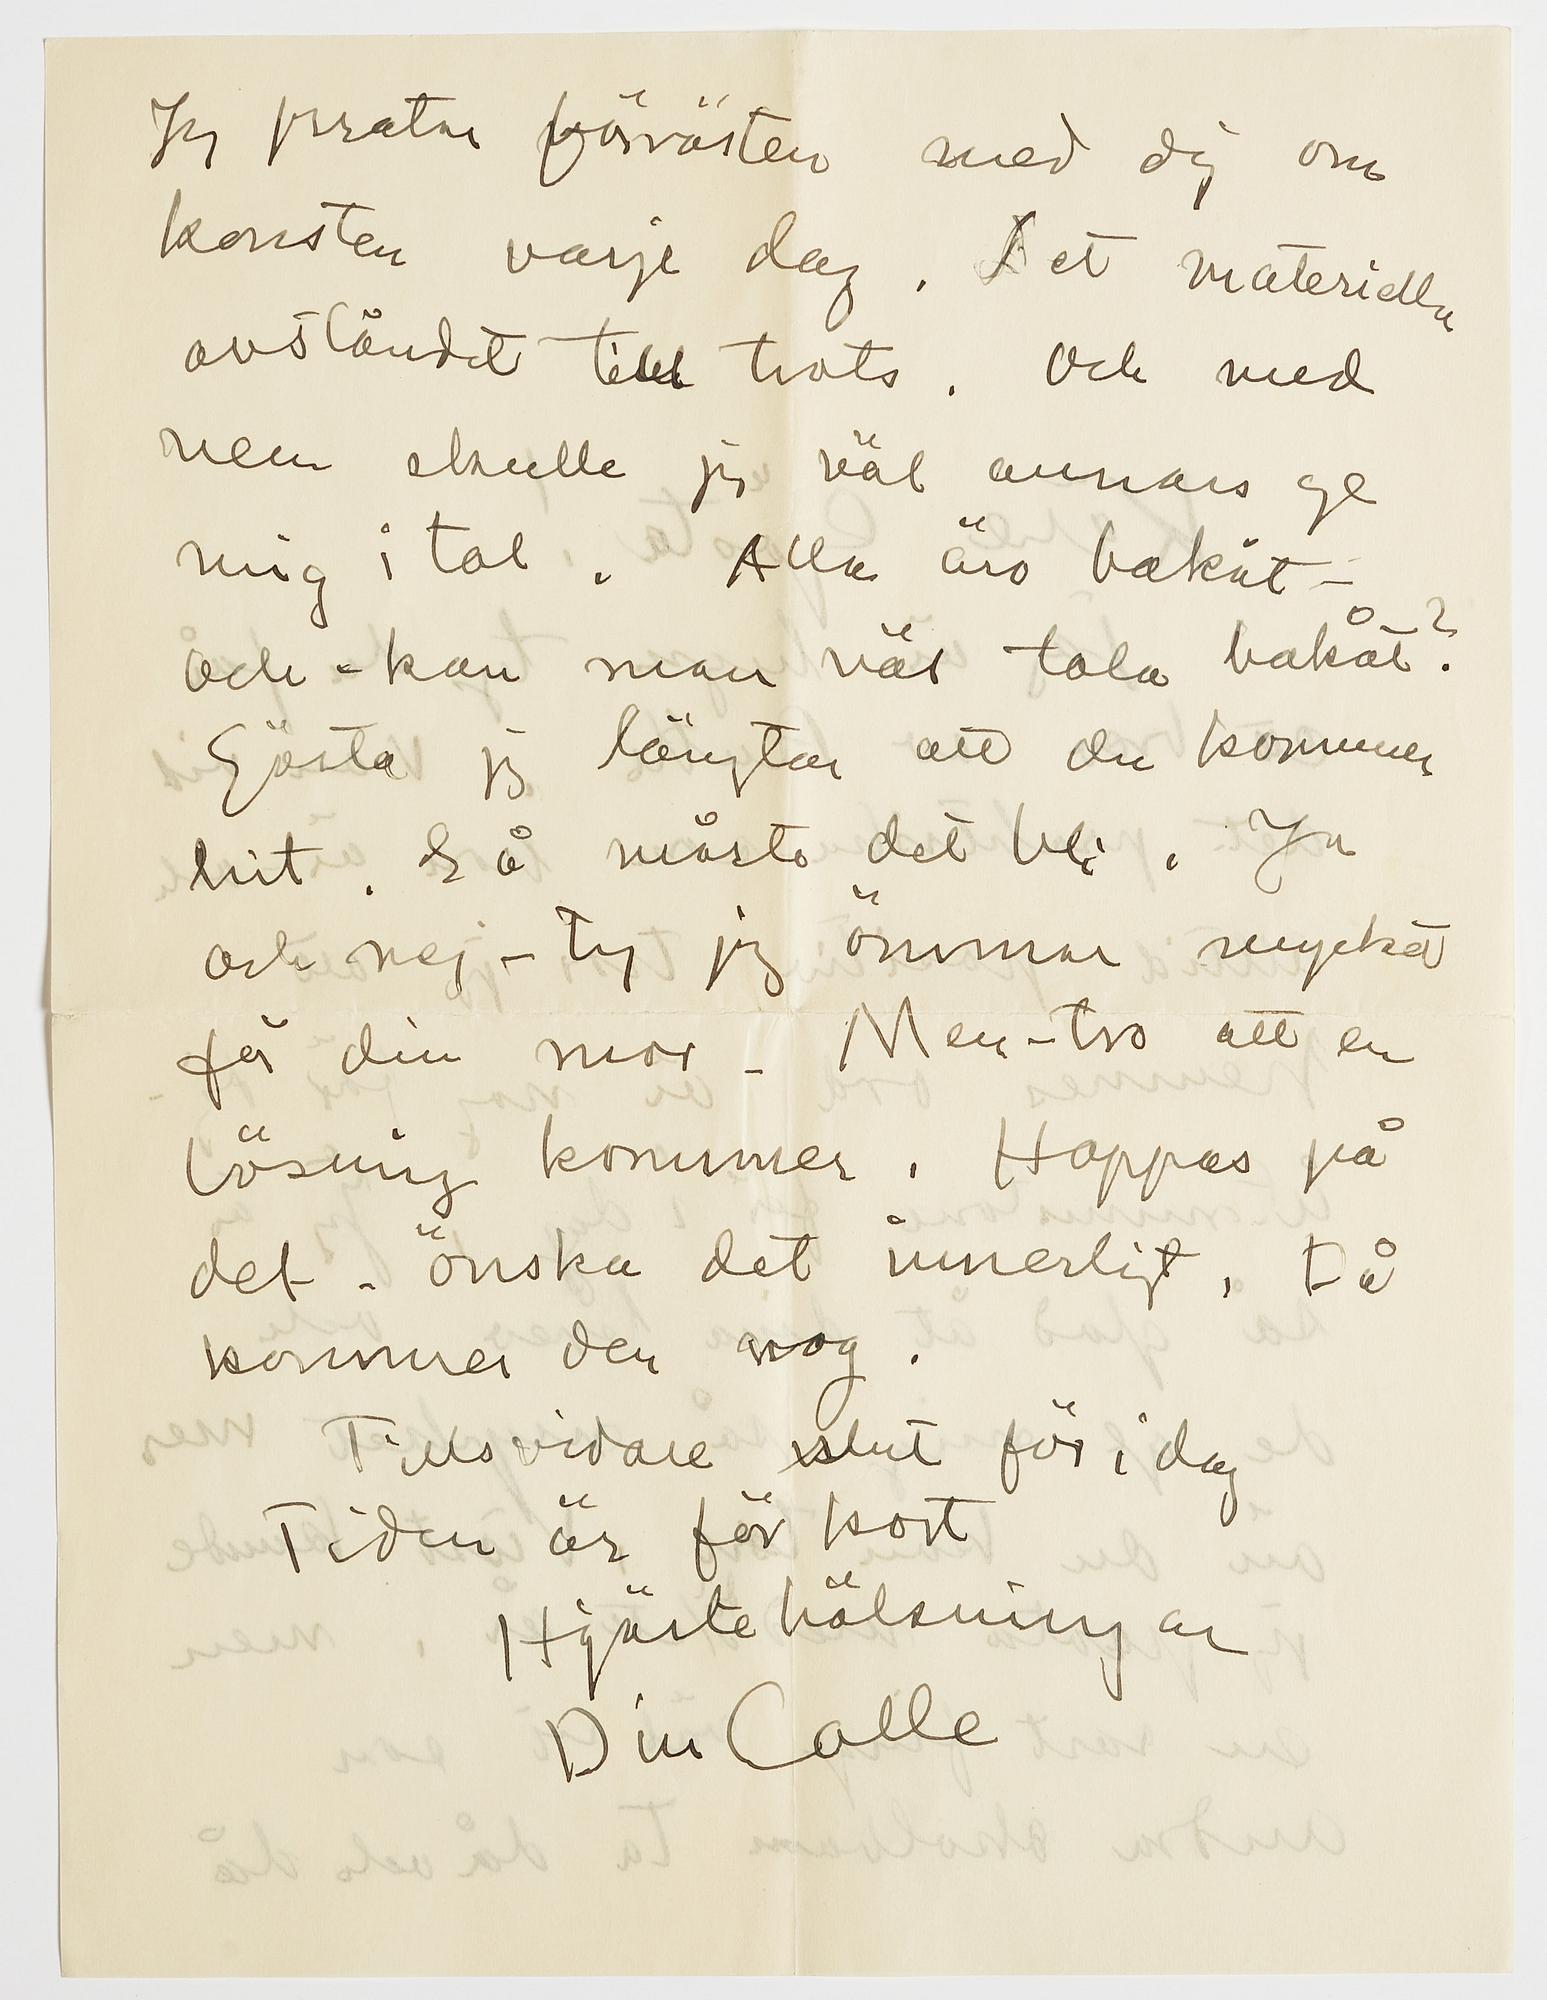 Jag pratar förresten med dig om
konsten varje dag. Det materiella
avståndet till trots. Och med
vem skulle jag väl annars ge
mig i tal. Alla äro bakåt –
och – kan man väl tala bakåt?
Gösta jag längtar att du kommer
hit. Så måste det bli. Ja
och nej – ty jag ömmar mycket
för din mor – Men – tro att en
lösning kommer. Hoppas på
det – önska det innerligt. Då
kommer den nog.
Tillsvidare slut för idag
Tiden är för kort
Hjärtehälsningar
Din Calle